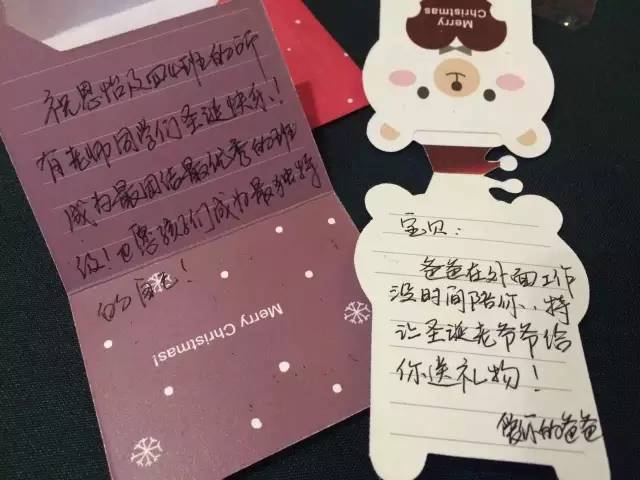 祝恩怡及四4班的所
有老师同学们圣诞快乐!
成为最团结最优秀的班
级!也愿孩子们成为最独特
的自己!
Merry Christmas!
Merry
Christmas
宝贝:
爸爸在外面工作
没时间陪你..特
让圣诞老爷爷给
你送礼物!
爱你的爸爸